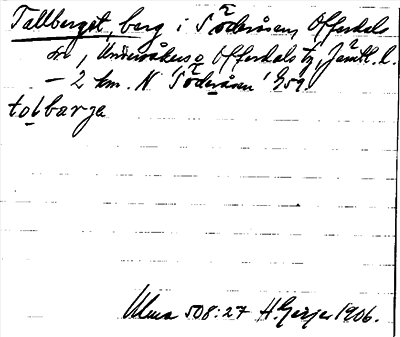 Tallberget, berg i Söderåsen, Offerdals
sn, Undersåkers o Offerdals tg, Jämtl. l.
— 2 km. N 'Söderåsen' G59.
tolbarja
Ulma 508:27 H. Geijer 1906.